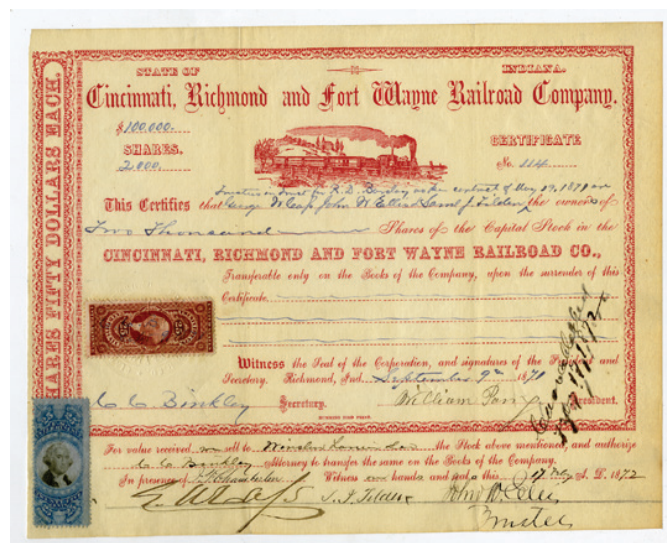 STATE OF INDIANA.
Cincinnati, Richmond and Fort Wayne Railroad Company.
$100,000.
SHARES. CERTIFICATE
2,000. No. 114
SHARES FIFTY DOLLARS EACH.
Trustees in trust for R. D. Barclay as per contract of May 19, 1870 are
This Certifies that George W Cass John W Ellis & Saml J. Tilden the owners of
Two Thousand Shares of the Capital Stock in the
CINCINNATI, RICHMOND AND FORT WAYNE RAILROAD CO.,
Transferable only on the Books of the Company, upon the surrender of this
Certificate.
25 25
Witness the Seal of the Corporation, and signatures of the President and
Secretary. Richmond, Ind. September 9th 1870
C C Binkley Secretary. William Parry President.
For value received we sell to the Stock above mentioned, and authorize
C C Binkley Attorney to transfer the same on the Books of the Company.
In presence of Chamberlin Witness our hands and this 17 May A. D. 1872
G W Cass S. J. Tilden John W. Ellis
Trustees